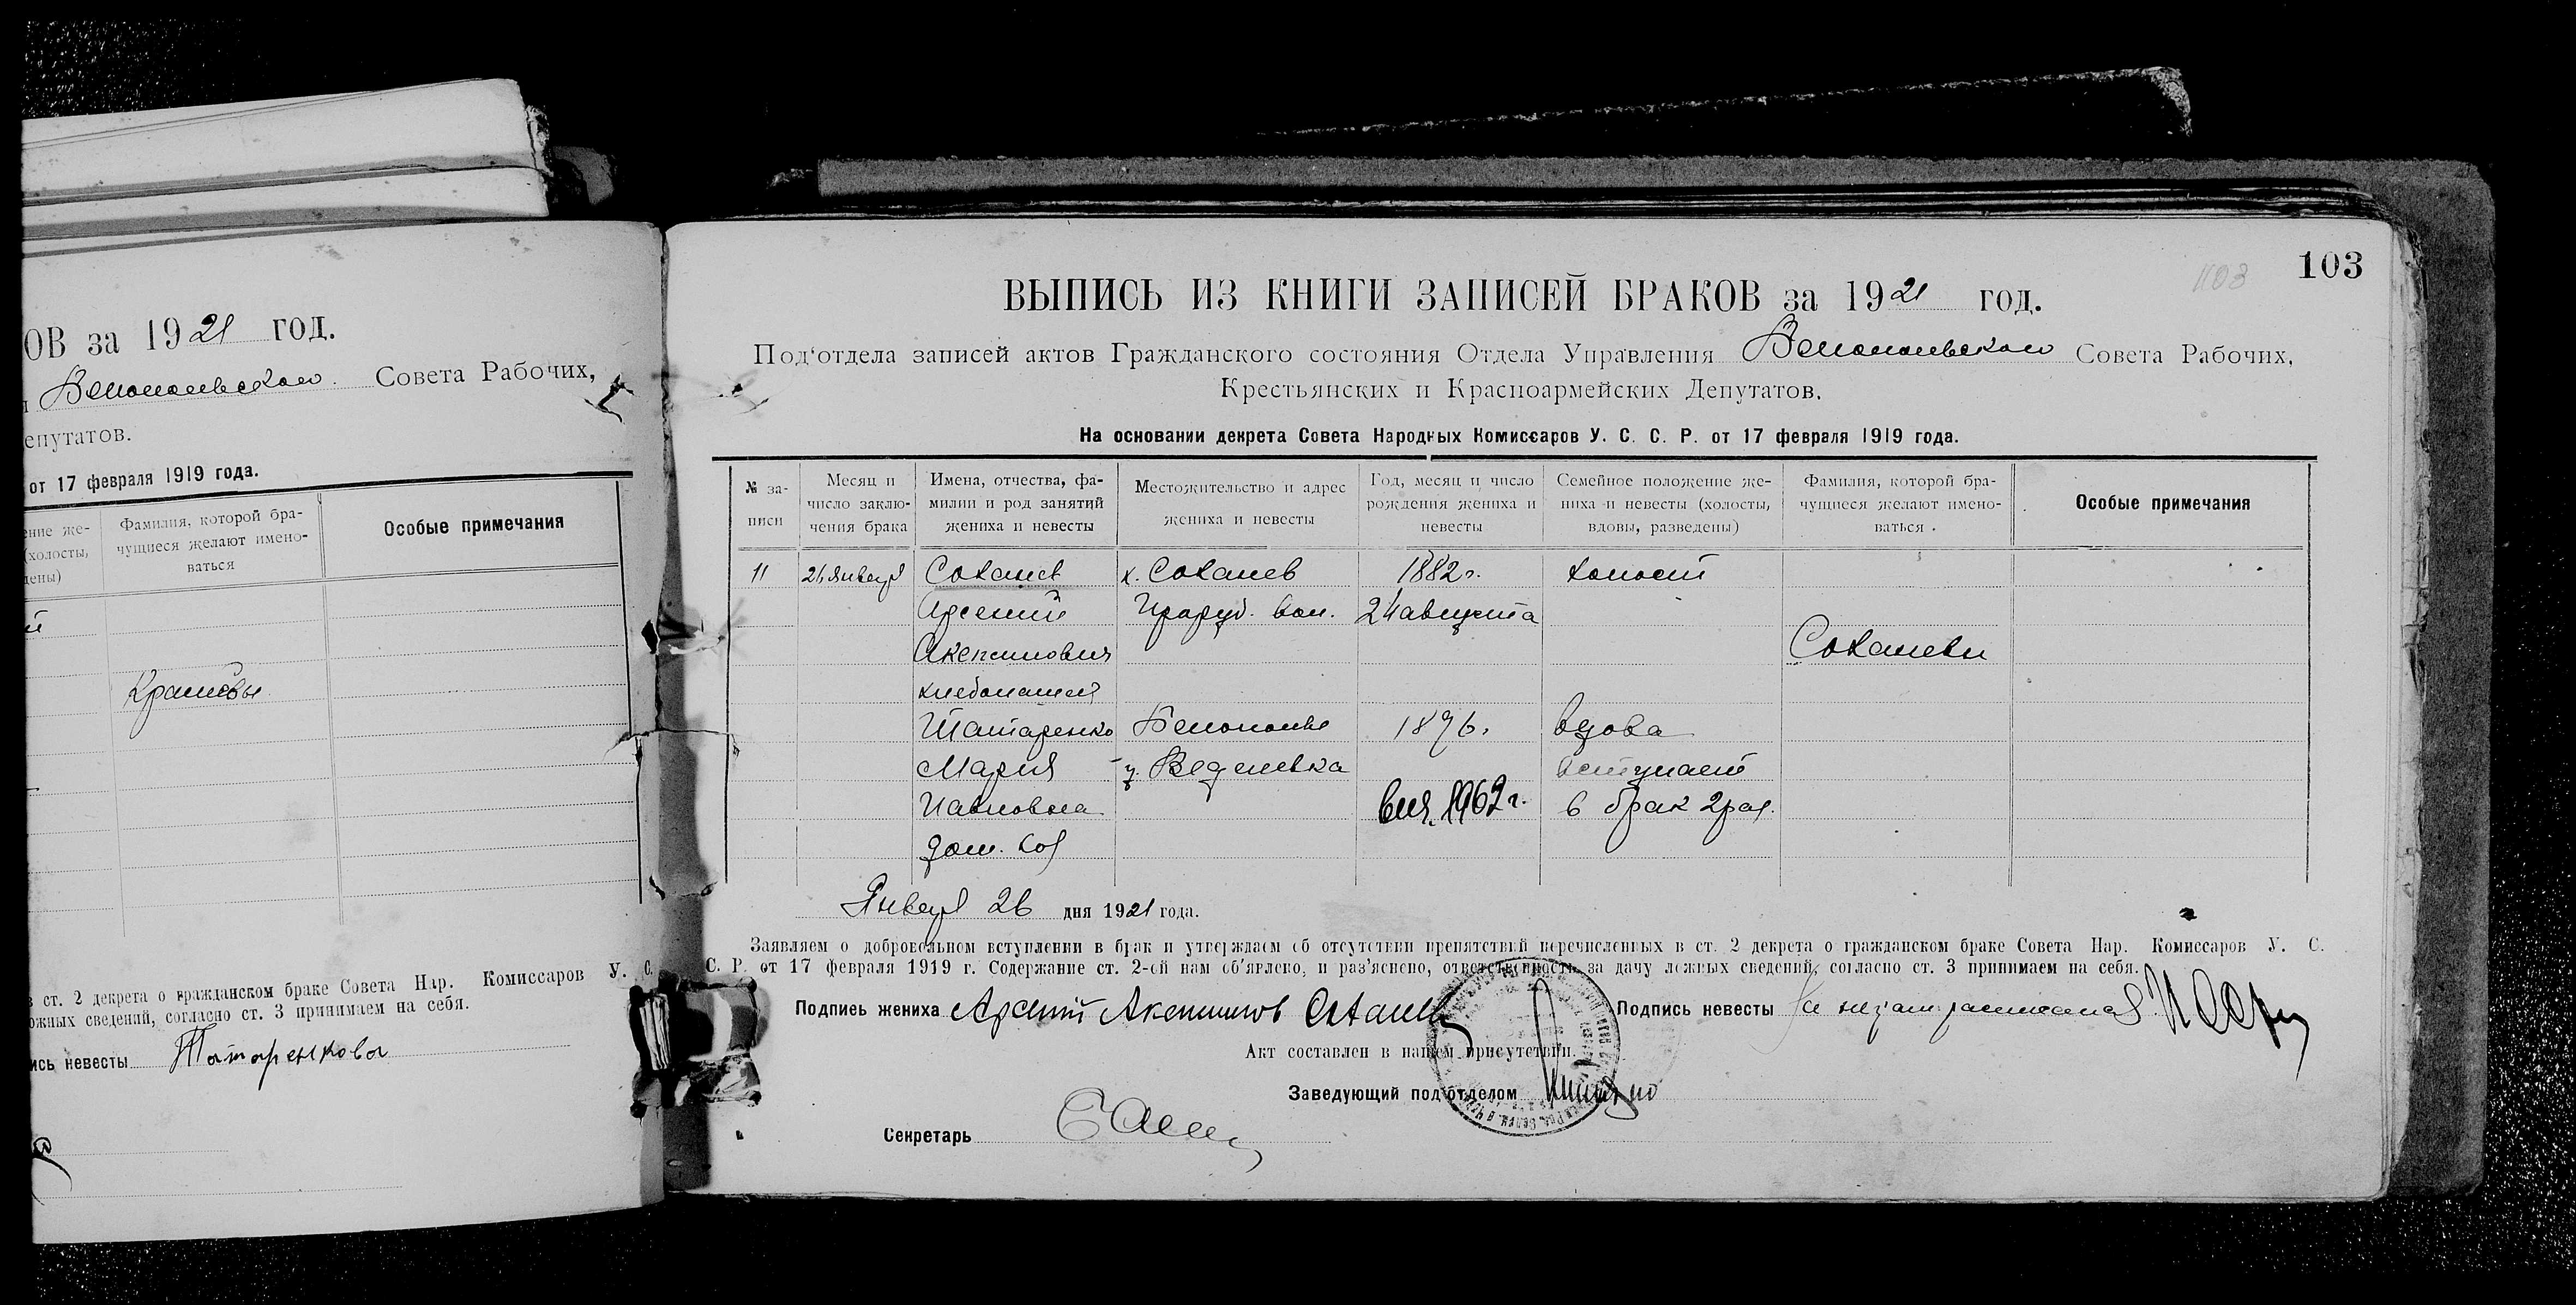 ОВ за 1921 год.
Белопольского Совета Рабочих,
епутатов.
от 17 февраля 1919 года.
ение же-
(холосты,
дены)
Фамилия, которой бра-
чущиеся желают имено-
ваться
Особые примечания
Крапивы
в ст. 2 декрета о гражданском браке Совета Нар. Комиссаров У. С.
ожных сведений, согласно ст. 3 принимаем на себя.
ись невесты Татаренкова
103
1103
ВЫПИСЬ ИЗ КНИГИ ЗАПИСЕЙ БРАКОВ за 1921 год.
Под'отдела записей актов Гражданского состояния Отдела Управления Белопольского Совета Рабочих,
Крестьянских и Красноармейских Депутатов.
На основании декрета Совета Народных Комиссаров У. С. С. Р. от 17 февраля 1919 года.
№ за-
писи
Месяц и
число заклю-
чения брака
Имена, отчества, фа-
милии и род занятий
жениха и невесты
Местожительство и адрес
жениха и невесты
Год, месяц и число
рождения жениха и
невесты
Семейное положение же-
ниха и невесты (холосты,
вдовы, разведены)
Фамилия, которой бра-
чущиеся желают имено-
ваться
Особые примечания
11 26 Январ Соханев х. Соханев 1882 г. холост
Арсений вол. 24 августа
Акепсимович Соханевы
хлебопашец
Татаренко Белополье 1876. вдова
Мария вступает
Павловна в брак 2 раз.
дом. хоз
Январ 26 дня 1921 года.
Заявляем о добровольном вступлении в брак и утверждаем об отсутствии препятствий перечисленных в ст. 2 декрета о гражданском браке Совета Нар. Комиссаров У. С.
С. Р. от 17 февраля 1919 г. Содержание ст. 2-ой нам об'явлено, и раз'яснено, ответственность за дачу ложных сведений, согласно ст. 3 принимаем на себя.
Подпись жениха Арсений Акепсимов Соханев Подпись невесты
Акт составлен в нашем присутствии.
Заведующий под'отделом
Секретарь